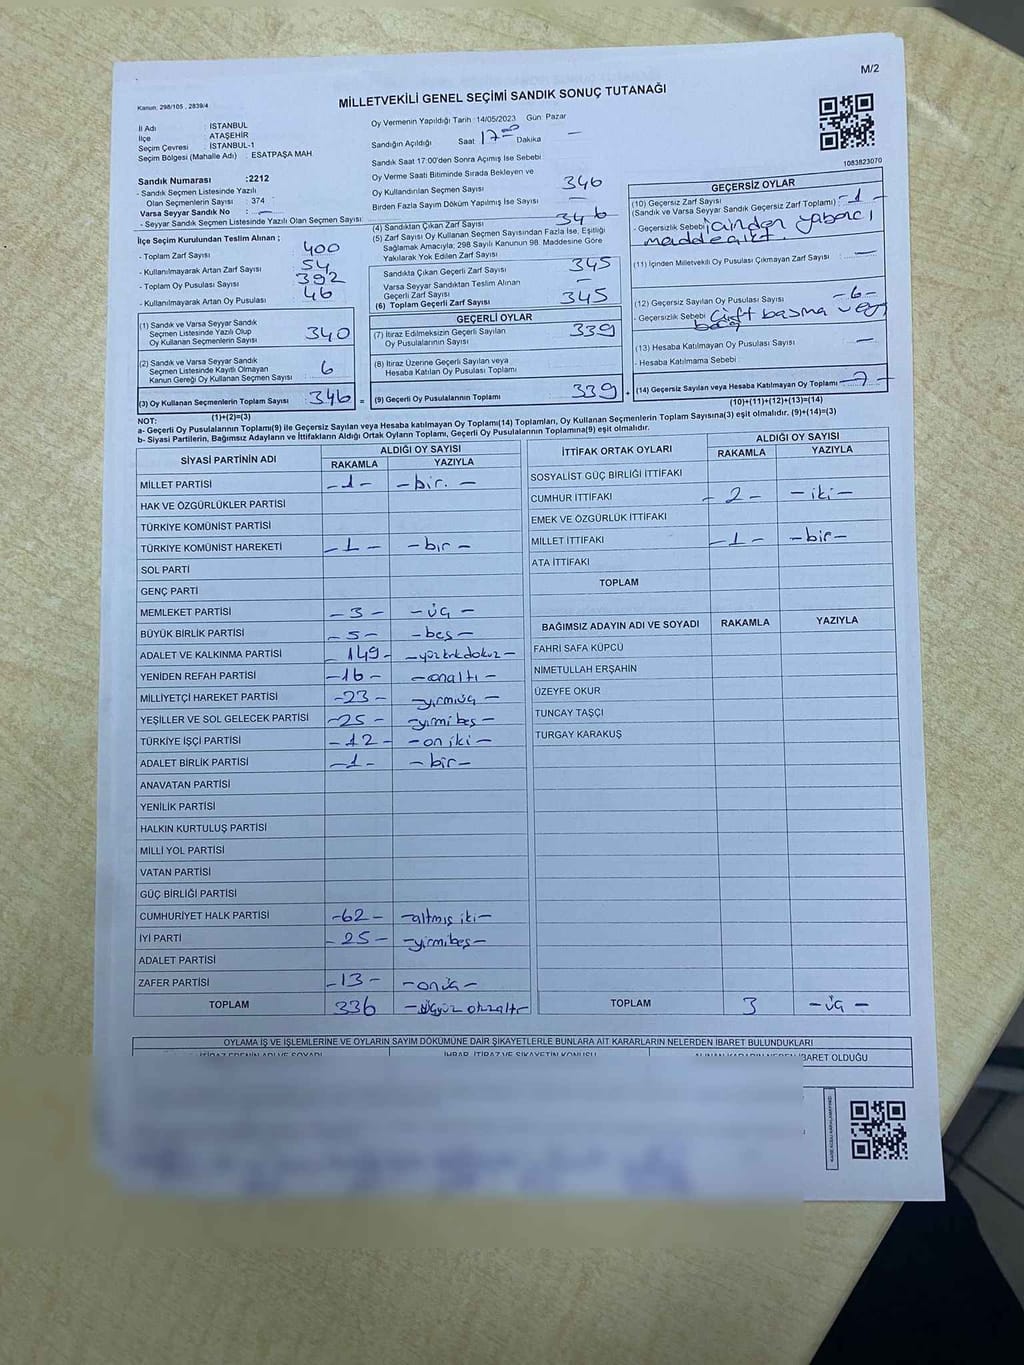 M/2
Kanun: 298/105 , 2839/4
MİLLETVEKİLİ GENEL SEÇİMİ SANDIK SONUÇ TUTANAĞI
İl Adı : İSTANBUL
İlçe : ATAŞEHİR
Seçim Çevresi : İSTANBUL-1
Seçim Bölgesi (Mahalle Adı) : ESATPAŞA MAH
Sandık Numarası :2212
- Sandık Seçmen Listesinde Yazılı
Olan Seçmenlerin Sayısı : 374
Varsa Seyyar Sandık No : —
- Seyyar Sandık Seçmen Listesinde Yazılı Olan Seçmen Sayısı:
İlçe Seçim Kurulundan Teslim Alınan ;
- Toplam Zarf Sayısı : 400
- Kullanılmayarak Artan Zarf Sayısı : 54
- Toplam Oy Pusulası Sayısı : 392
- Kullanılmayarak Artan Oy Pusulası : 46
(1) Sandık ve Varsa Seyyar Sandık
Seçmen Listesinde Yazılı Olup
Oy Kullanan Seçmenlerin Sayısı 340
(2) Sandık ve Varsa Seyyar Sandık
Seçmen Listesinde Kayıtlı Olmayan
Kanun Gereği Oy Kullanan Seçmen Sayısı 6
(3) Oy Kullanan Seçmenlerin Toplam Sayısı 346 =
(1)+(2)=(3)
Oy Vermenin Yapıldığı Tarih :14/05/2023 Gün: Pazar
Sandığın Açıldığı Saat 17 00 Dakika —
Sandık Saat 17:00'den Sonra Açılmış İse Sebebi:
Oy Verme Saati Bitiminde Sırada Bekleyen ve
Oy Kullandırılan Seçmen Sayısı 346
Birden Fazla Sayım Döküm Yapılmış İse Sayısı —
(4) Sandıktan Çıkan Zarf Sayısı 346
(5) Zarf Sayısı Oy Kullanan Seçmen Sayısından Fazla İse, Eşitliği
Sağlamak Amacıyla; 298 Sayılı Kanunun 98. Maddesine Göre
Yakılarak Yok Edilen Zarf Sayısı
Sandıkta Çıkan Geçerli Zarf Sayısı 345
Varsa Seyyar Sandıktan Teslim Alınan
Geçerli Zarf Sayısı —
(6) Toplam Geçerli Zarf Sayısı 345
GEÇERLİ OYLAR
(7) İtiraz Edilmeksizin Geçerli Sayılan
Oy Pusulasının Sayısı 339
(8) İtiraz Üzerine Geçerli Sayılan veya
Hesaba Katılan Oy Pusulası Toplamı
(9) Geçerli Oy Pusulalarının Toplamı 339 +
1083823070
GEÇERSİZ OYLAR
(10) Geçersiz Zarf Sayısı
(Sandık ve Varsa Seyyar Sandık Geçersiz Zarf Toplamı) - 1 -
- Geçersizlik Sebebi içinden yabancı
madde çıktı.
(11) İçinden Milletvekili Oy Pusulası Çıkmayan Zarf Sayısı —
(12) Geçersiz Sayılan Oy Pusulası Sayısı - 6 -
- Geçersizlik Sebebi Çift basma veya
boş
(13) Hesaba Katılmayan Oy Pusulası Sayısı —
- Hesaba Katılmama Sebebi
(14) Geçersiz Sayılan veya Hesaba Katılmayan Oy Toplamı - 7 -
(10)+(11)+(12)+(13)=(14)
NOT:
a- Geçerli Oy Pusulalarının Toplamı(9) ile Geçersiz Sayılan veya Hesaba katılmayan Oy Toplamı(14) Toplamları, Oy Kullanan Seçmenlerin Toplam Sayısına(3) eşit olmalıdır. (9)+(14)=(3)
b- Siyasi Partilerin, Bağımsız Adayların ve İttifakların Aldığı Ortak Oyların Toplamı, Geçerli Oy Pusulalarının Toplamına(9) eşit olmalıdır.
SİYASİ PARTİNİN ADI ALDIĞI OY SAYISI
RAKAMLA YAZIYLA
MİLLET PARTİSİ - 1 - - bir. -
HAK VE ÖZGÜRLÜKLER PARTİSİ
TÜRKİYE KOMÜNİST PARTİSİ
TÜRKİYE KOMÜNİST HAREKETİ - 1 - - bir -
SOL PARTİ
GENÇ PARTİ
MEMLEKET PARTİSİ - 3 - - üç -
BÜYÜK BİRLİK PARTİSİ - 5 - - beş -
ADALET VE KALKINMA PARTİSİ - 149 - - yüzkırkdokuz -
YENİDEN REFAH PARTİSİ - 16 - - onaltı -
MİLLİYETÇİ HAREKET PARTİSİ - 23 - - yirmiüç -
YEŞİLLER VE SOL GELECEK PARTİSİ - 25 - - yirmi beş -
TÜRKİYE İŞÇİ PARTİSİ - 12 - - on iki -
ADALET BİRLİK PARTİSİ - 1 - - bir -
ANAVATAN PARTİSİ
YENİLİK PARTİSİ
HALKIN KURTULUŞ PARTİSİ
MİLLİ YOL PARTİSİ
VATAN PARTİSİ
GÜÇ BİRLİĞİ PARTİSİ
CUMHURİYET HALK PARTİSİ - 62 - - altmış iki -
İYİ PARTİ - 25 - - yirmibeş -
ADALET PARTİSİ
ZAFER PARTİSİ - 13 - - onüç -
TOPLAM 336 - üçyüz otuzaltı -
İTTİFAK ORTAK OYLARI ALDIĞI OY SAYISI
RAKAMLA YAZIYLA
SOSYALİST GÜÇ BİRLİĞİ İTTİFAKI
CUMHUR İTTİFAKI - 2 - - iki -
EMEK VE ÖZGÜRLÜK İTTİFAKI
MİLLET İTTİFAKI - 1 - - bir -
ATA İTTİFAKI
TOPLAM
BAĞIMSIZ ADAYIN ADI VE SOYADI RAKAMLA YAZIYLA
FAHRİ SAFA KÜPCÜ
NİMETULLAH ERŞAHİN
ÜZEYFE OKUR
TUNCAY TAŞÇI
TURGAY KARAKUŞ
TOPLAM 3 - üç -
OYLAMA İŞ VE İŞLEMLERİNE VE OYLARIN SAYIM DÖKÜMÜNE DAİR ŞİKAYETLERLE BUNLARA AİT KARARLARIN NELERDEN İBARET BULUNDUKLARI
İTİRAZ EDENİN ADI VE SOYADI İHBAR, İTİRAZ VE ŞİKAYETİN KONUSU ALINAN KARARIN NEDEN İBARET OLDUĞU